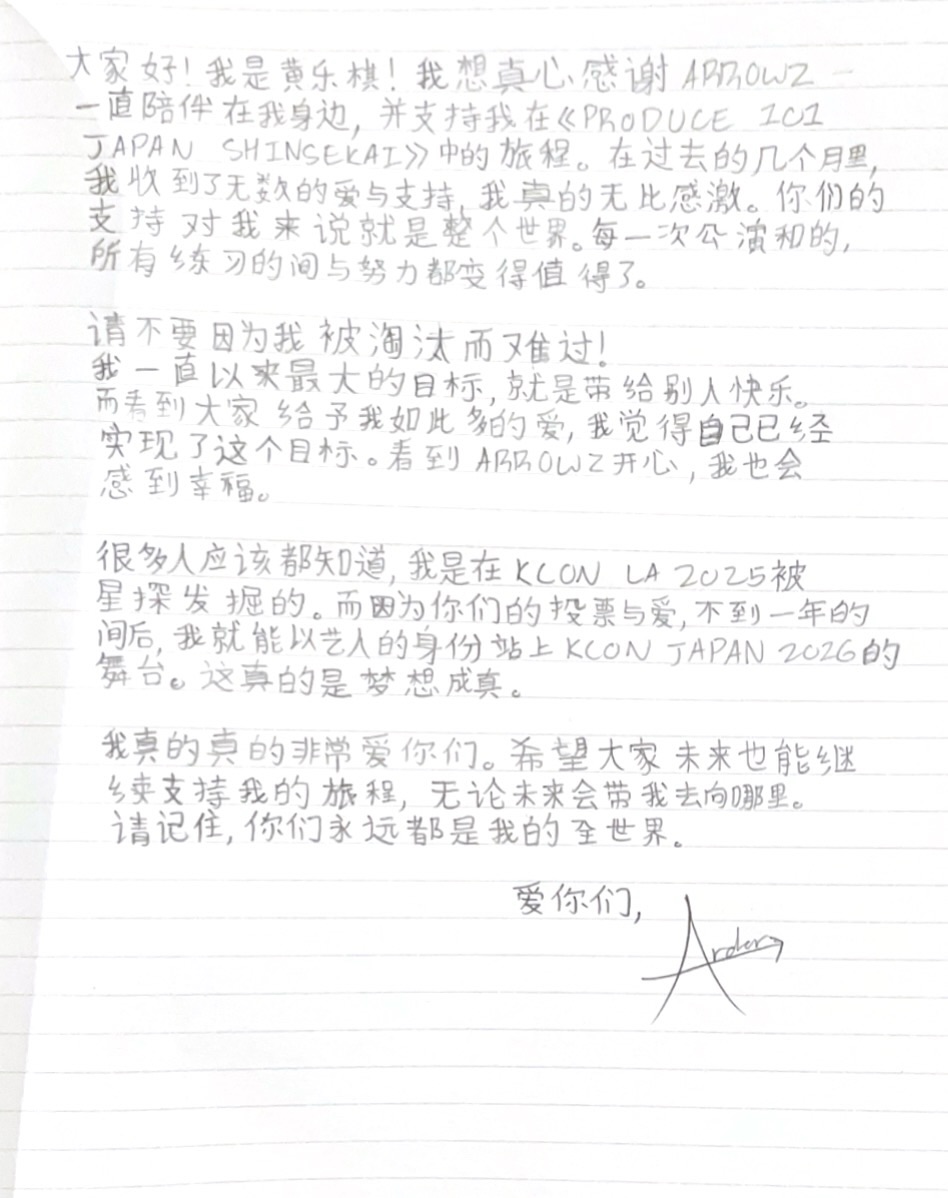 大家好！我是黄乐棋！我想真心感谢 ARROWZ
一直陪伴在我身边，并支持我在《PRODUCE 101
JAPAN SHINSEKAI》中的旅程。在过去的几个月里，
我收到了无数的爱与支持，我真的无比感激。你们的
支持对我来说就是整个世界。每一次公演和的，
所有练习的间与努力都变得值得了。
请不要因为我被淘汰而难过！
我一直以来最大的目标，就是带给别人快乐。
而看到大家给予我如此多的爱，我觉得自己已经
实现了这个目标。看到 ARROWZ 开心，我也会
感到幸福。
很多人应该都知道，我是在 KCON LA 2025 被
星探发掘的。而因为你们的投票与爱，不到一年的
间后，我就能以艺人的身份站上 KCON JAPAN 2026 的
舞台。这真的是梦想成真。
我真的真的非常爱你们。希望大家未来也能继
续支持我的旅程，无论未来会带我去向哪里。
请记住，你们永远都是我的全世界。
爱你们，